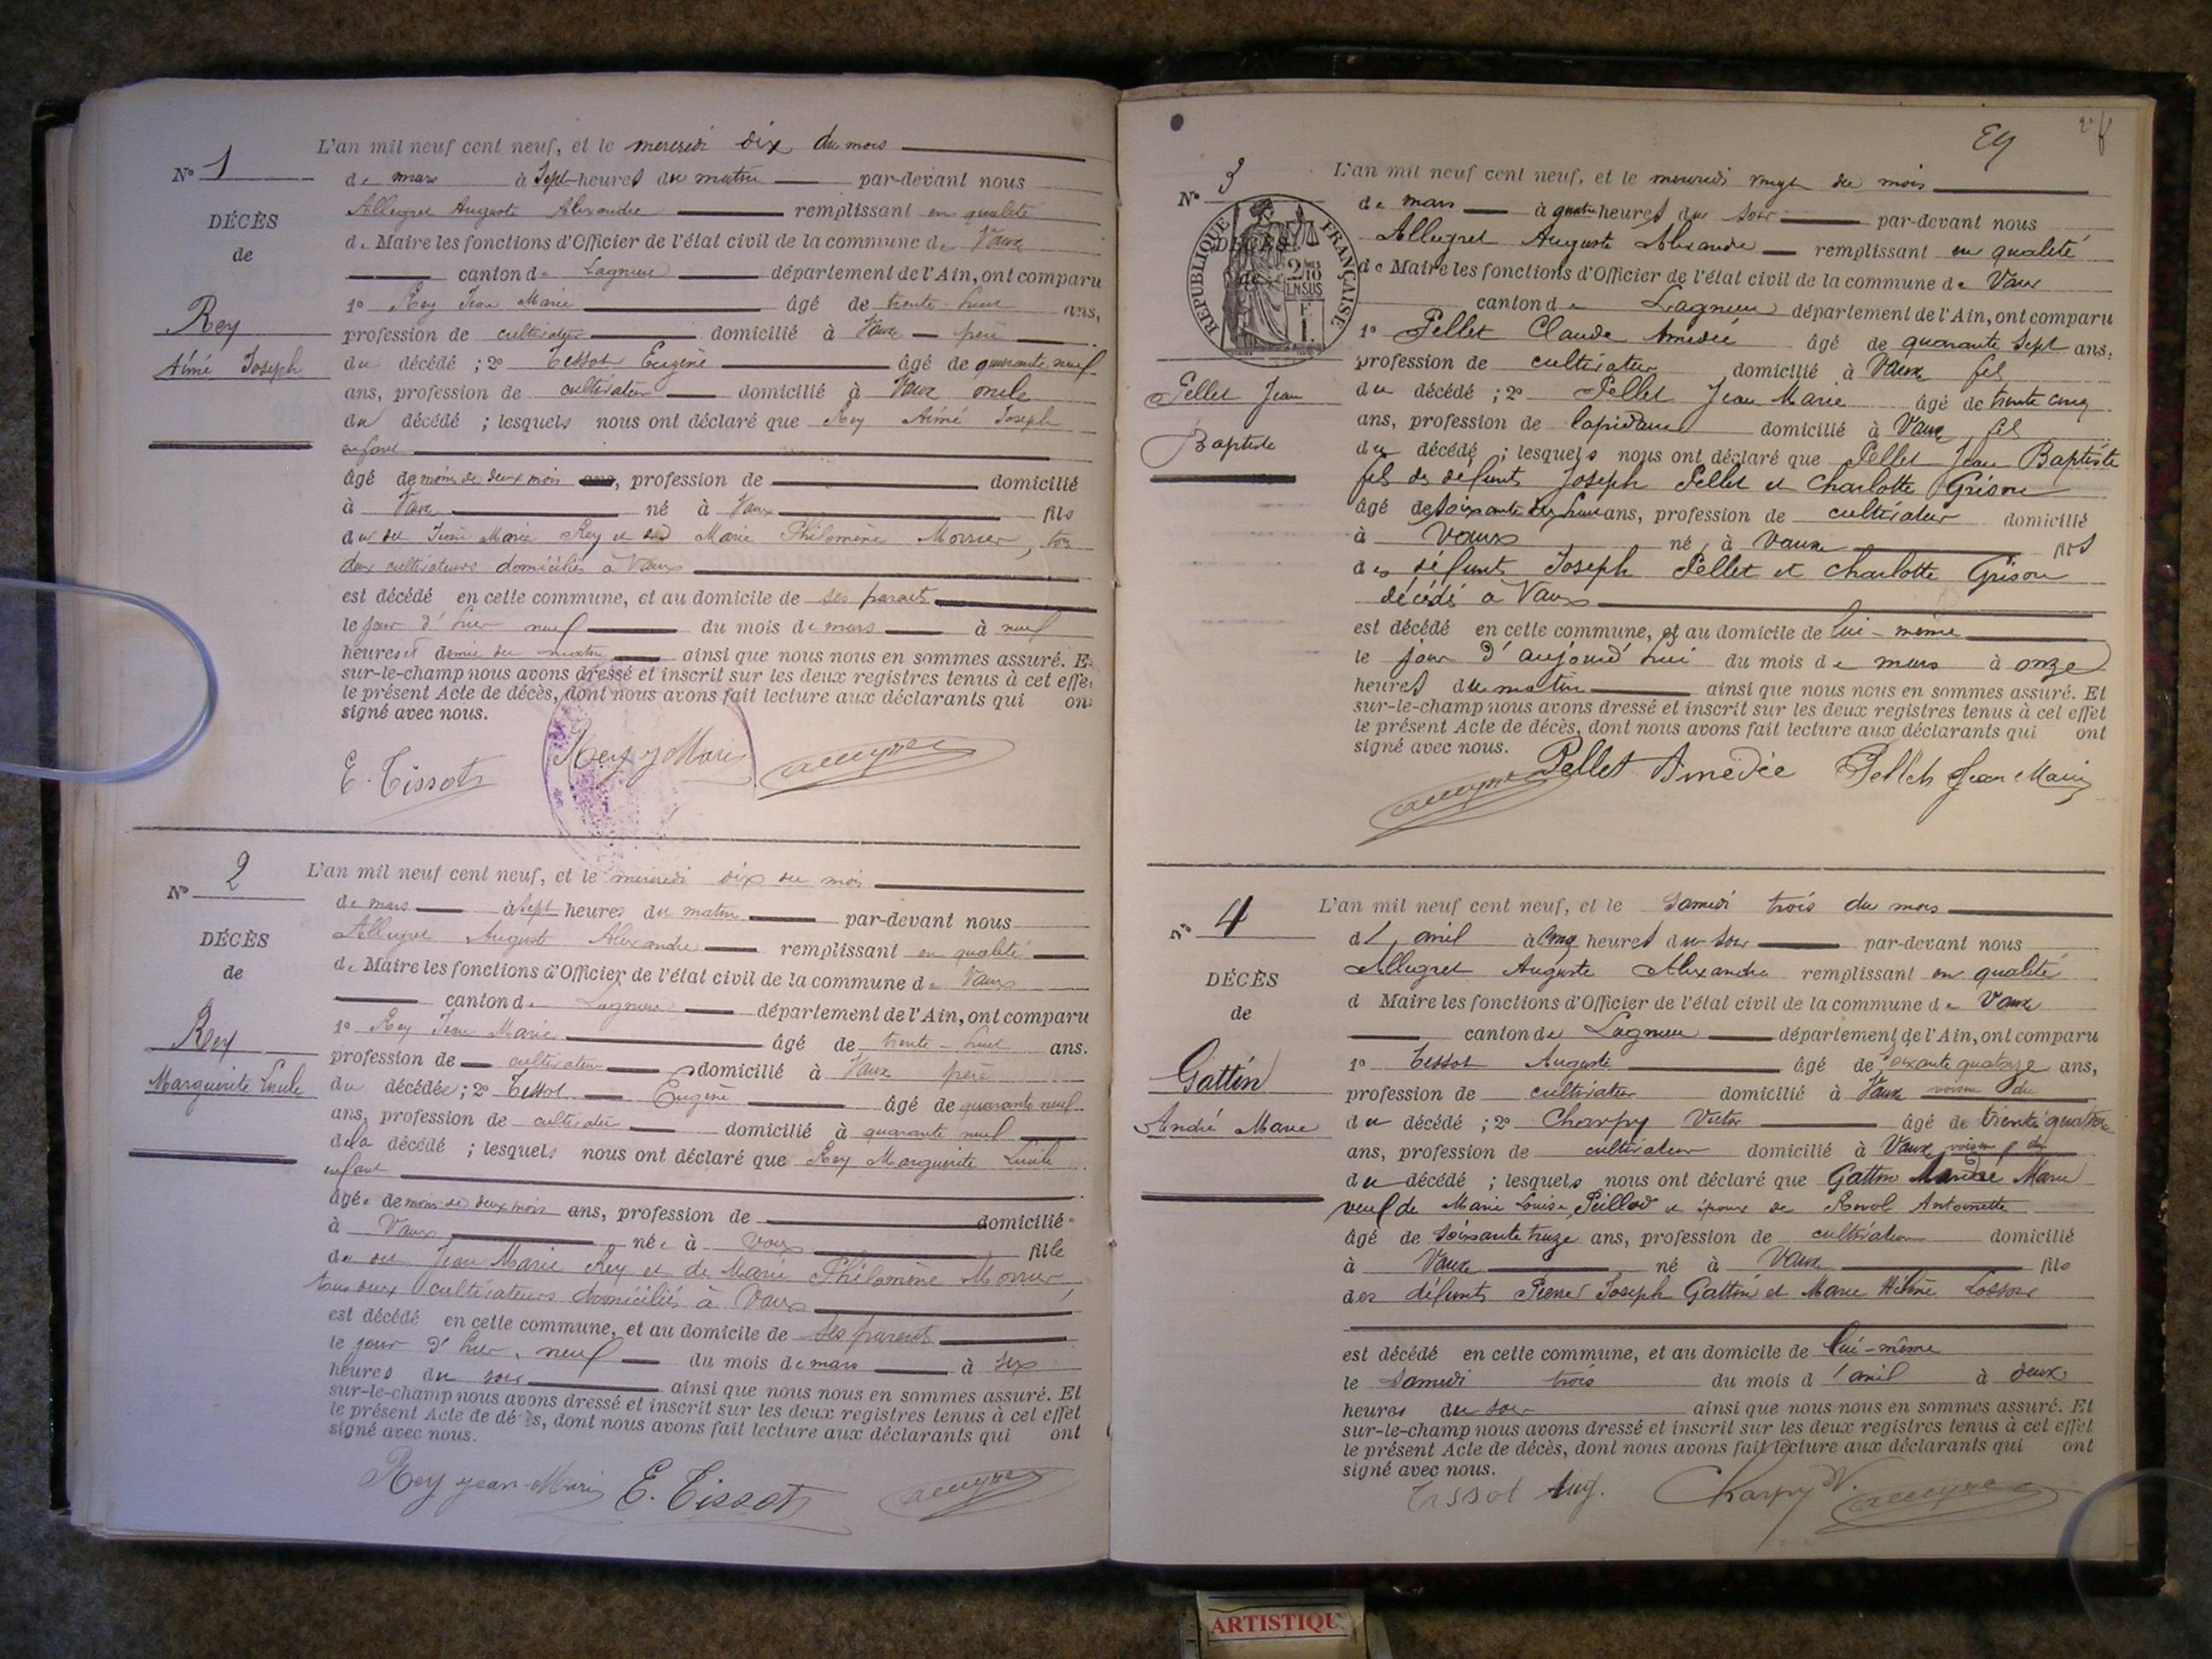 N° 1
DÉCÈS
de
Rey
Aimé Joseph
L'an mil neuf cent neuf, et le mercredi dix du mois
de mars à Sept heures du matin par-devant nous
Allegret Auguste Alexandre remplissant en qualité
de Maire les fonctions d'Officier de l'état civil de la commune de Vaux
canton de Lagnieu département de l'Ain, ont comparu
1° Rey Jean Marie âgé de trente-huit ans,
profession de cultivateur domicilié à Vaux père
du décédé ; 2° Tissot Eugène âgé de quarante neuf
ans, profession de cultivateur domicilié à Vaux oncle
du décédé ; lesquels nous ont déclaré que Rey Aimé Joseph
enfant
âgé de moins de deux mois ans, profession de domicilié
à Vaux né à Vaux fils
du Marie Rey et de Marie Philomène tous
deux cultivateurs domiciliés à Vaux
est décédé en cette commune, et au domicile de ses parents
le jour d'hier neuf du mois de mars à neuf
heures et demie du matin ainsi que nous nous en sommes assuré. E
sur-le-champ nous avons dressé et inscrit sur les deux registres tenus à cet effe
le présent Acte de décès, dont nous avons fait lecture aux déclarants qui on
signé avec nous.
E. Tissot Rey j Marie
N° 2
DÉCÈS
de
Rey
Marguerite Lucile
L'an mil neuf cent neuf, et le mercredi dix du mois
de mars à sept heures du matin par-devant nous
Allegret Auguste Alexandre remplissant en qualité
de Maire les fonctions d'Officier de l'état civil de la commune de Vaux
canton de Lagnieu département de l'Ain, ont comparu
1° Rey Jean Marie âgé de trente-huit ans.
profession de cultivateur domicilié à Vaux père
du décédée ; 2° Tissot Eugène âgé de quarante neuf
ans, profession de cultivateur domicilié à quarante neuf
de la décédé ; lesquels nous ont déclaré que Rey Marguerite Lucile
enfant
âgée de moins de deux mois ans, profession de domicilié
à Vaux née à Vaux fille
de Jean Marie Rey et de Marie Philomène
tous deux cultivateurs domiciliés à Vaux
est décédé en cette commune, et au domicile de ses parents
le jour d'hier, neuf du mois de mars à six
heures du soir ainsi que nous nous en sommes assuré. Et
sur-le-champ nous avons dressé et inscrit sur les deux registres tenus à cet effet
le présent Acte de décès, dont nous avons fait lecture aux déclarants qui ont
signé avec nous.
Rey jean-Marie E. Tissot
N° 3
DÉCÈS
de
RÉPUBLIQUE FRANÇAISE
2/10 EN SUS
Pellet Jean
Baptiste
L'an mil neuf cent neuf, et le mercredi vingt du mois
de mars à quatre heures du soir par-devant nous
Allegret Auguste Alexandre remplissant en qualité
de Maire les fonctions d'Officier de l'état civil de la commune de Vaux
canton de Lagnieu département de l'Ain, ont comparu
1° Pellet Claude Amédée âgé de quarante sept ans,
profession de cultivateur domicilié à Vaux fils
du décédé ; 2° Pellet Jean Marie âgé de trente cinq
ans, profession de lapidaire domicilié à Vaux, fils
du décédé ; lesquels nous ont déclaré que Pellet Jean Baptiste
fils de défunts Joseph Pellet et Charlotte Grison
âgé de soixante dix huit ans, profession de cultivateur domicilié
à Vaux né à Vaux fils
des défunts Joseph Pellet et Charlotte Grison
décédé à Vaux
est décédé en cette commune, et au domicile de lui-même
le jour d'aujourd'hui du mois de mars à onze
heures du matin ainsi que nous nous en sommes assuré. Et
sur-le-champ nous avons dressé et inscrit sur les deux registres tenus à cet effet
le présent Acte de décès, dont nous avons fait lecture aux déclarants qui ont
signé avec nous.
Pellet Amédée Pellet Jean Marie
N° 4
DÉCÈS
de
Gattin
André Marie
L'an mil neuf cent neuf, et le samedi trois du mois
d'avril à cinq heures du soir par-devant nous
Allegret Auguste Alexandre remplissant en qualité
d Maire les fonctions d'Officier de l'état civil de la commune de Vaux
canton de Lagnieu département de l'Ain, ont comparu
1° Tissot Auguste âgé de soixante quatorze ans,
profession de cultivateur domicilié à Vaux voisin du
du décédé ; 2° Charpy Victor âgé de trente quatre
ans, profession de cultivateur domicilié à Vaux voisin du
du décédé ; lesquels nous ont déclaré que Gattin André Marie
veuf de Marie Louise Peillod et époux de Revol Antoinette
âgé de soixante treize ans, profession de cultivateur domicilié
à Vaux né à Vaux fils
des défunts Pierre Joseph Gattin et Marie Hélène
est décédé en cette commune, et au domicile de lui-même
le samedi trois du mois d'avril à deux
heures du soir ainsi que nous nous en sommes assuré. Et
sur-le-champ nous avons dressé et inscrit sur les deux registres tenus à cet effet
le présent Acte de décès, dont nous avons fait lecture aux déclarants qui ont
signé avec nous.
Tissot Aug. Charpy V.
ARTISTIQU